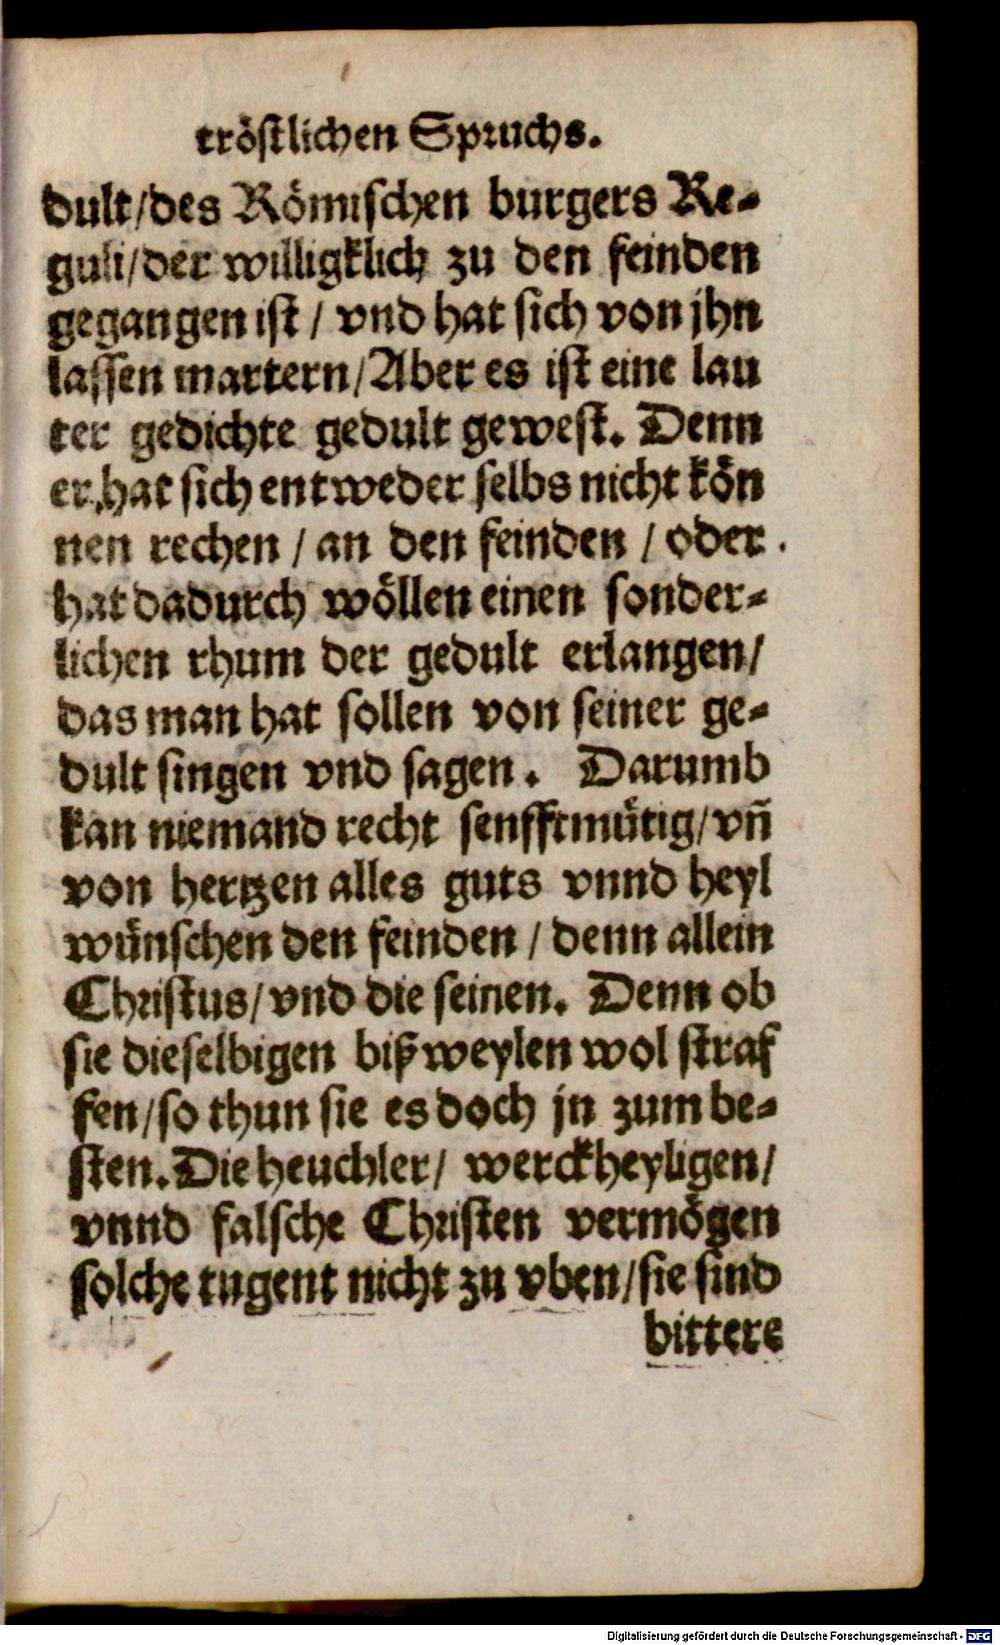 tröstlichen Spruchs.
dult/des Römischen burgers Re-
guli/der willigklich zu den feinden
gegangen ist / vnd hat sich von jhn
lassen martern/Aber es ist eine lau
ter gedichte gedult gewest. Denn
er hat sich entweder selbs nicht kön
nen rechen / an den feinden / oder
hat dadurch wöllen einen sonder-
lichen rhum der gedult erlangen/
das man hat sollen von seiner ge-
dult singen vnd sagen. Darumb
kan niemand recht senfftmütig/vñ
von hertzen alles guts vnnd heyl
wünschen den feinden / denn allein
Christus/vnd die seinen. Denn ob
sie dieselbigen bißweylen wol straf
fen/so thun sie es doch jn zum be-
sten. Die heuchler/ werckheyligen/
vnnd falsche Christen vermögen
solche tugent nicht zu vben/sie sind
bittere
Digitalisierung gefördert durch die Deutsche Forschungsgemeinschaft - DFG